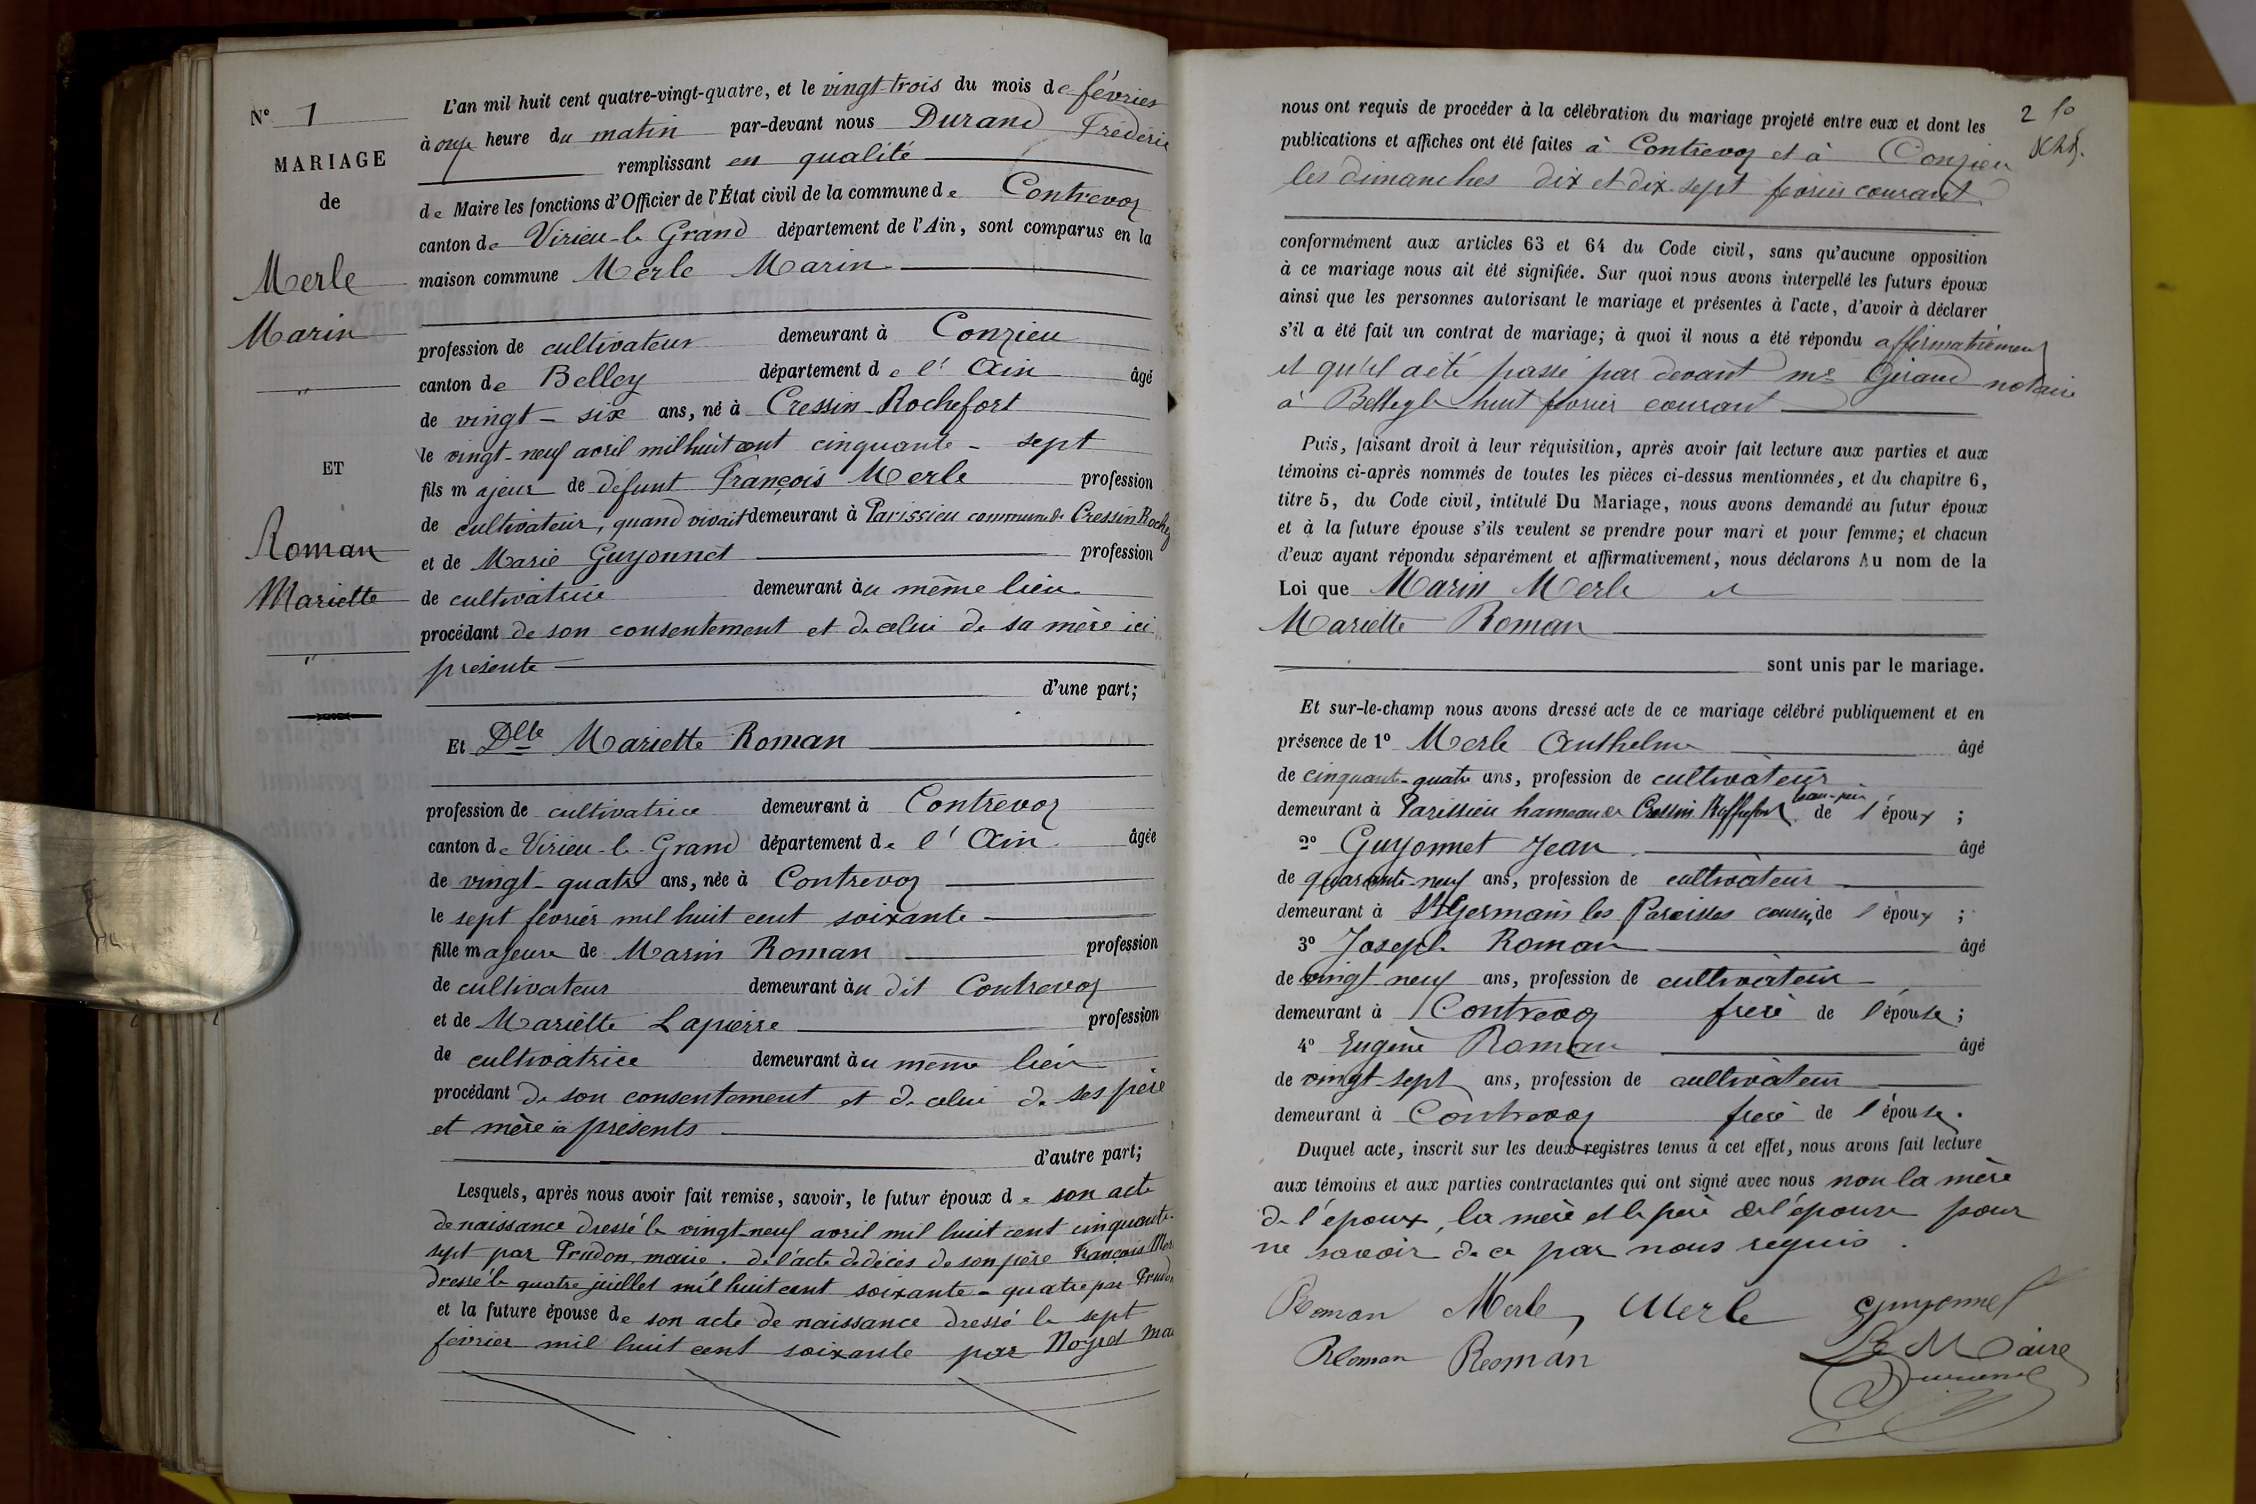 N° 1
MARIAGE
de
Merle
Marin
"
ET
Roman
Mariette
"
L'an mil huit cent quatre-vingt-quatre, et le vingt-trois du mois de février
à onze heure du matin par-devant nous Durand Frédéric
remplissant en qualité
de Maire les fonctions d'Officier de l'État civil de la commune de Contrevoz
canton de Virieu-le-Grand département de l'Ain, sont comparus en la
maison commune Merle Marin
profession de cultivateur demeurant à Conzieu
canton de Belley département de l'Ain âgé
de vingt-six ans, né à Cressin-Rochefort
le vingt-neuf avril mil huit cent cinquante-sept
fils majeur de défunt François Merle profession
de cultivateur, quand vivait demeurant à Parissieu commune de Cressin Rochef
et de Marie Guyonnet profession
de cultivatrice demeurant au même lieu
procédant de son consentement et de celui de sa mère ici
présente
d'une part;
Et Dlle Mariette Roman
profession de cultivatrice demeurant à Contrevoz
canton de Virieu-le-Grand département de l'Ain âgée
de vingt-quatre ans, née à Contrevoz
le sept février mil huit cent soixante
fille majeure de Marin Roman profession
de cultivateur demeurant au dit Contrevoz
et de Mariette Lapierre profession
de cultivatrice demeurant au même lieu
procédant de son consentement et de celui de ses père
et mère ici présents
d'autre part;
Lesquels, après nous avoir fait remise, savoir, le futur époux de son acte
de naissance dressé le vingt-neuf avril mil huit cent cinquante-
sept par Prudon, maire. de l'acte de décès de son père François Mer
dressé le quatre juillet mil huit cent soixante-quatre par Prudon
et la future épouse de son acte de naissance dressé le sept
février mil huit cent soixante par Noyel mai
2
nous ont requis de procéder à la célébration du mariage projeté entre eux et dont les
publications et affiches ont été faites à Contrevoz et à Conzieu
les dimanches dix et dix-sept février courant
conformément aux articles 63 et 64 du Code civil, sans qu'aucune opposition
à ce mariage nous ait été signifiée. Sur quoi nous avons interpellé les futurs époux
ainsi que les personnes autorisant le mariage et présentes à l'acte, d'avoir à déclarer
s'il a été fait un contrat de mariage; à quoi il nous a été répondu affirmativement
et qu'il a été passé par devant me Giraud notaire
à Belley le huit février courant
Puis, faisant droit à leur réquisition, après avoir fait lecture aux parties et aux
témoins ci-après nommés de toutes les pièces ci-dessus mentionnées, et du chapitre 6,
titre 5, du Code civil, intitulé Du Mariage, nous avons demandé au futur époux
et à la future épouse s'ils veulent se prendre pour mari et pour femme; et chacun
d'eux ayant répondu séparément et affirmativement, nous déclarons Au nom de la
Loi que Marin Merle et
Mariette Roman
sont unis par le mariage.
Et sur-le-champ nous avons dressé acte de ce mariage célébré publiquement et en
présence de 1° Merle Anthelme âgé
de cinquante-quatre ans, profession de cultivateur
demeurant à Parissieu hameau de Cressin Rochefort beau-père de l'époux ;
2° Guyonnet Jean âgé
de quarante-neuf ans, profession de cultivateur
demeurant à St Germain les Paroisses cousin de l'époux ;
3° Joseph Roman âgé
de vingt neuf ans, profession de cultivateur
demeurant à Contrevoz frère de l'épouse ;
4° Eugène Roman âgé
de vingt-sept ans, profession de cultivateur
demeurant à Contrevoz frère de l'épouse.
Duquel acte, inscrit sur les deux registres tenus à cet effet, nous avons fait lecture
aux témoins et aux parties contractantes qui ont signé avec nous non la mère
de l'époux, la mère et le père de l'épouse pour
ne savoir de ce par nous requis.
Roman Merle Merle Guyonnet
Roman Roman Le Maire
Durand